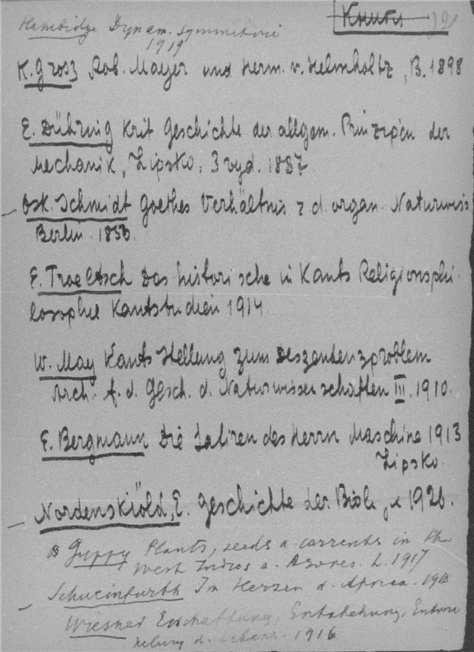 Hambidge Dynam. symmetrie
1919
Книги
K. Grosz Rob. Mayer und Herm. v. Helmholtz, B. 1898
E. Dühring Krit Geschichte der allgem. Prinzipien der
Mechanik, Lipsko, 3 vyd. 1887
Osk. Schmidt Goethes Verhältnis z. d. organ. Naturwiss
Berlin. 1853.
E. Troeltsch Das historische in Kants Religionsphi-
losophie Kantstudien 1914
W. May Kants Stellung zum Deszendenzproblem
Arch. f. d. Gesch. d. Naturwissenschaften III. 1910.
E. Bergmann Die Satiren des Herrn Maschine 1913
Lipsko.
Nordenskiöld, E. Geschichte der Biol. 1926.
Guppy Plants, seeds a. currents in the
West Indies a. Azores. L. 1917
Schweinfurth Im Herzen v. Africa.
Wiesner Erschaffung, Entstehung, Entwic
kelung d. Lebens. 1916